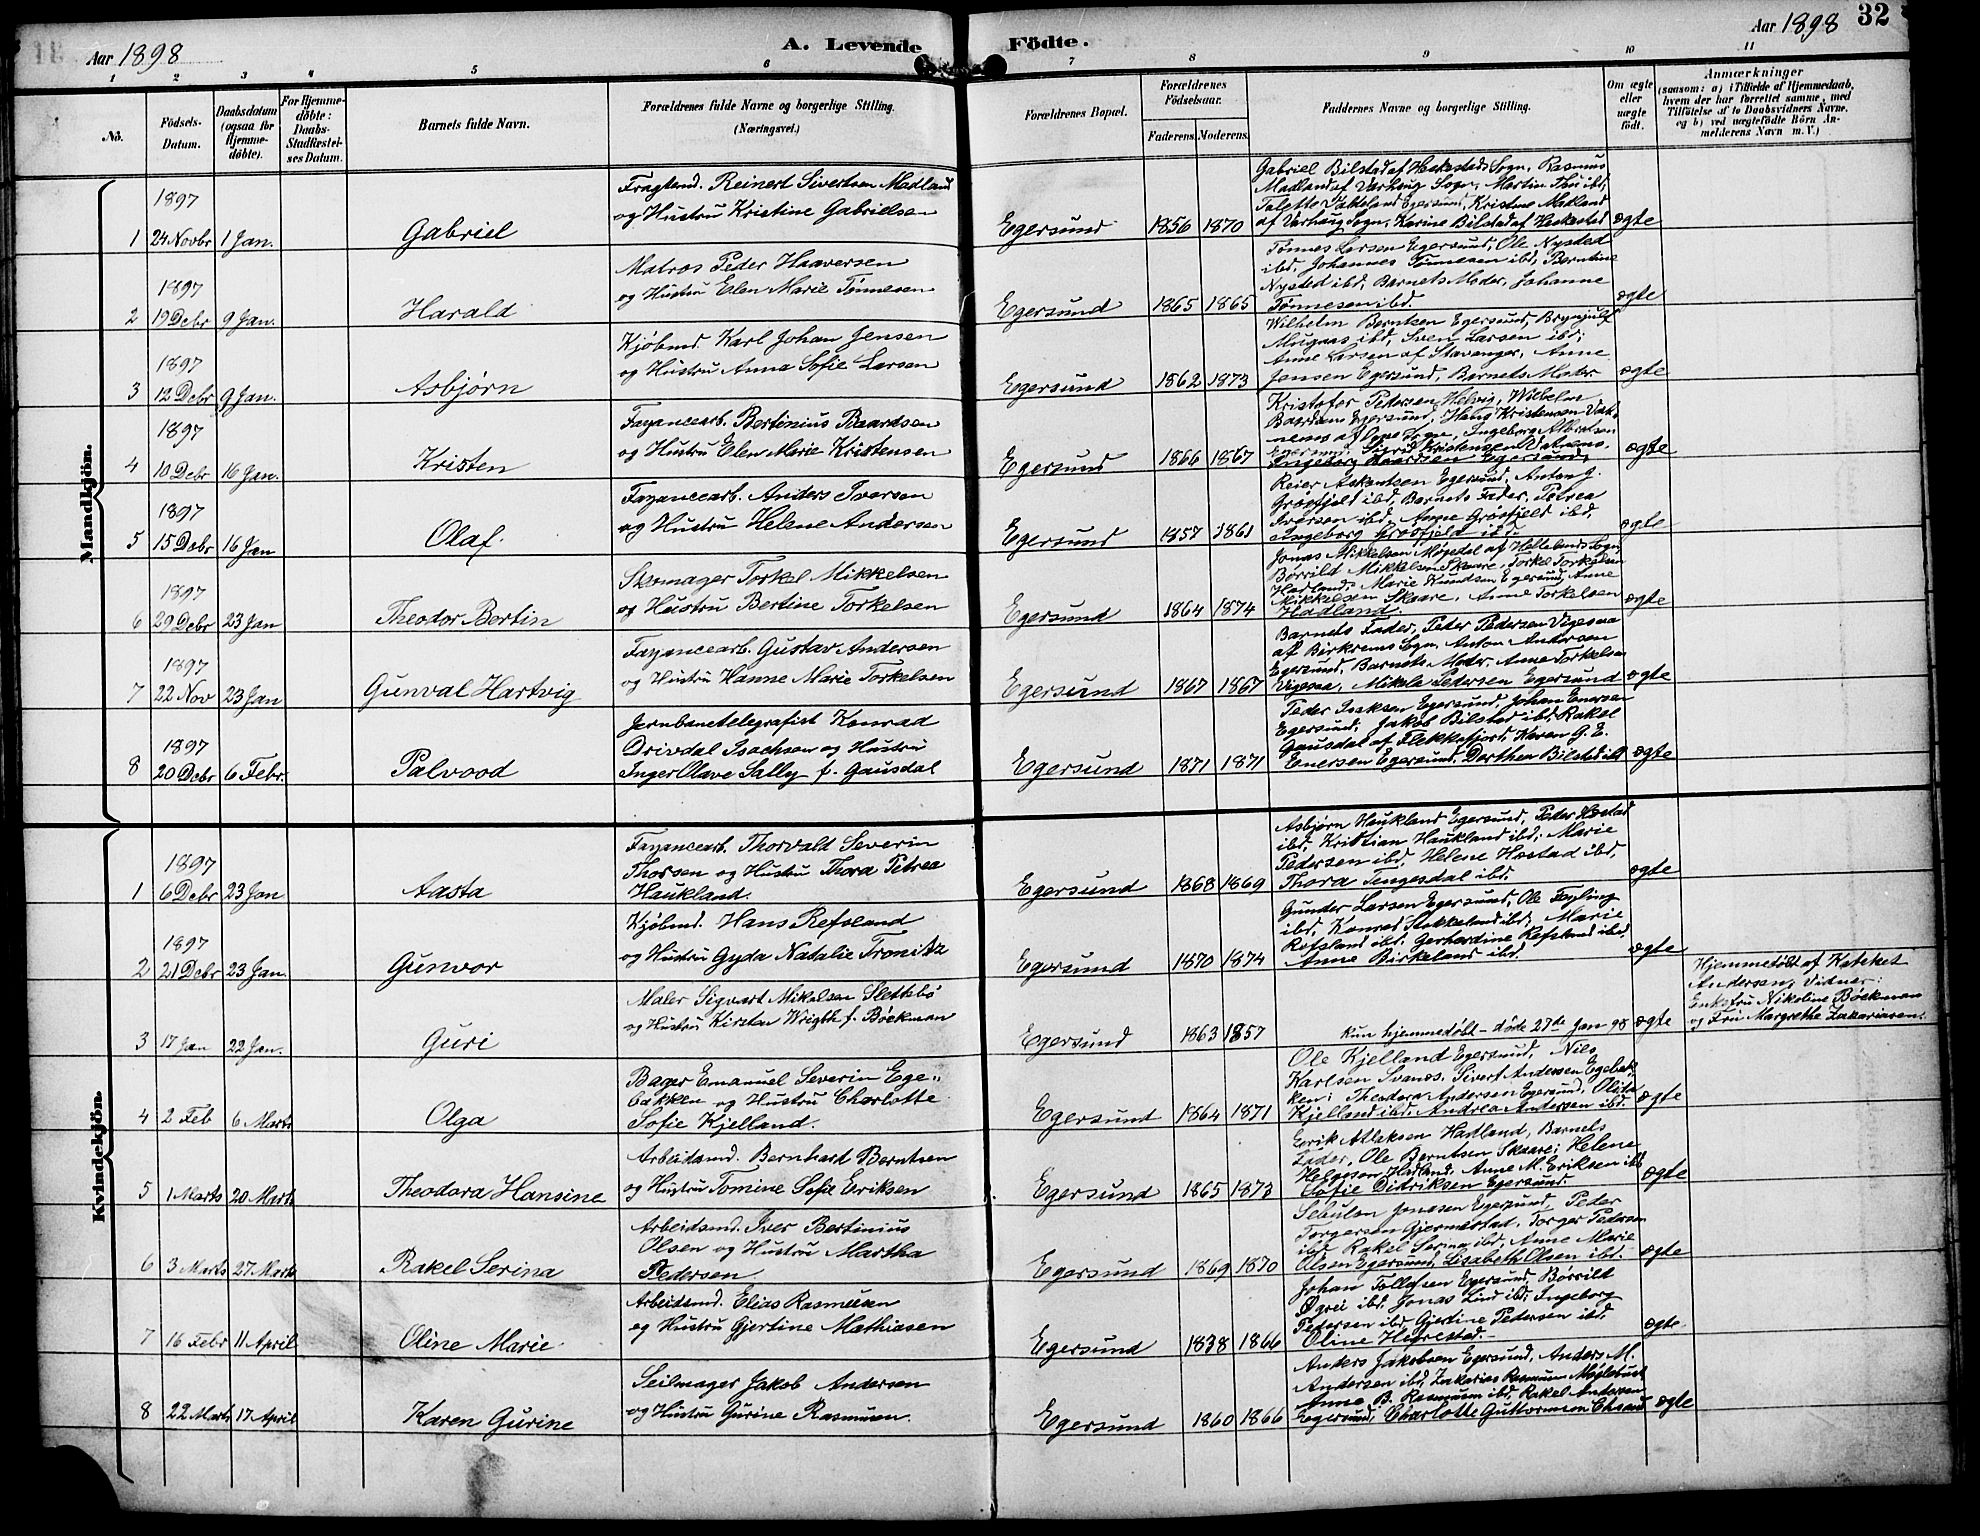 Aar 1898
A. Levende Födte.
Aar 1898
32
1 2 3 4 5 6 7 8 9 10 11
Nô.
Födsels-Datum.
Daabsdatum (ogsaa for Hjemme-döbte).
For Hjemme-döbte: Daabs-Stadfæstel-ses Datum.
Barnets fulde Navn.
Forældrenes fulde Navne og borgerlige Stilling.
(Næringsvei.)
Forældrenes Bopæl.
Forældrenes Födselsaar.
Faderens. Moderens.
Faddernes Navne og borgerlige Stilling.
Om ægte eller uægte födt.
Anmærkninger
(saasom: a) i Tilfælde af Hjemmedaab, hvem der har forrettet samme, med Tilföielse af to Daabsvidners Navne, og b) ved uægtefödte Börn An-melderens Navn m. V.)
Mandkjön.
1 1897 24 Novbr 1 Jan. Gabriel
Fragtmd. Reinert Sivertsen Madland
og Hustru Kristine Gabrielsen
Egersund 1856 1870
Gabriel Bilstad af Heskestads Sogn, Rasmus
Madland af Varhaug Sogn, Martin Thu ibd,
Talette Eggersund, Kristine Madland
af Varhaug Sogn, Karine Bilstad af Heskestad
ægte
2 1897 19 Debr 9 Jan. Harald
Matros Peder Haaversen
og Hustru Elen Marie Tønnesen
Egersund 1865 1865
Tønnes Larsen Egersund, Ole Nysted
ibd, Johannes Tønnesen ibd, Berntine
Nysted ibd, Barnets Moder, Johanne
Tønnesen ibd.
ægte
3 1897 12 Debr 9 Jan. Asbjørn
Kjøbmd. Karl Johan Jensen
og Hustru Anna Sofie Larsen
Egersund 1862 1873
Wilhelm Berntsen Egersund, Brynjulf
Mugaas ibd, Sven Larsen ibd;
Anne Larsen af Stavanger, Anne
Jensen Egersund, Barnets Moder
ægte
4 1897 10 Debr 16 Jan. Kristen
Fayancearb. Bertinius Baardsen
og Hustru Elen Marie Kristensen
Egersund 1866 1867
Kristofer Pedersen Helvig, Wilhelm
Baardsen Egersund, Hans Kristensen
Ingeborg Albretsen
Sigrid Kristensen
Ingeborg Baardsen Egersund.
ægte
5 1897 15 Debr 16 Jan Olaf
Fayancearb. Anders Iversen
og Hustru Helene Andersen
Egersund 1857 1861
Reier Askantsen Egersund, Anton G.
Grøsfjeld ibd, Barnets Fader, Petrea
Iversen ibd, Anne Grøsfjeld ibd,
Ingeborg Grøsfjeld ibd.
ægte
6 1897 29 Debr 23 Jan Theodor Bertin
Skomager Torkel Mikkelsen
og Hustru Bertine Torkelsen
Egersund 1864 1874
Jonas Mikkelsen Møgedal af Hellelands Sogn,
Børrild Mikkelsen Skaare, Torkel Torkelsen
Hadland; Marie Knudsen Egersund, Anne
Mikkelsen Skaare, Anne Torkelsen
Hadland.
ægte
7 1897 22 Nov 23 Jan Gunval Hartvig
Fayancearb. Gustav Andersen
og Hustru Hanne Marie Torkelsen
Egersund 1867 1867
Barnets Fader, Peder Pedersen Vigesaa
af Birkrems Sogn, Anton Andersen
Egersund, Barnets Moder, Anne Torkelsen
Vigesaa, Mikela Pedersen Egersund
ægte
8 1897 20 Debr 6 Febr. Palvood
Jernbanetelegrafist Konrad
Drivdal Isachsen og Hustru
Inger Olave Sally f. Gausdal
Egersund 1871 1871
Peder Isaksen Egersund, Johan Enersen
Egersund, Jakob Bilstad ibd, Rakel
Gausdal af Flekkefjord, Karen G. E.
Enersen Egersund, Dorthea Bilsted ibd
ægte
Kvindekjön.
1 1897 6 Debr 23 Jan Aasta
Fayancearb. Thorvald Severin
Thorsen og Hustru Thora Petrea
Haukland.
Egersund 1868 1869
Asbjørn Haukland Egersund, Peder Hæstad
ibd, Kristian Haukland ibd; Marie
Pedersen ibd, Helene Hæstad ibd,
Thora Tengesdal ibd.
ægte
2 1897 21 Debr 23 Jan. Gunvor
Kjøbmd. Hans Refsland
og Hustru Gyda Natalie Fronitz
Egersund 1870 1874
Gunder Larsen Egersund, Ole Fogling
ibd, Konrad Stokkeland ibd; Marie
Refsland ibd, Gerhardine Refsland ibd,
Anne Birkeland ibd.
ægte
3 17 Jan 22 Jan. Guri
Maler Sigvart Mikalsen Slettebø
og Hustru Kirsten Wrigth f. Bøckman
Egersund 1863 1857
Kun hjemmedøbt – døde 27de Jan 98
ægte
Hjemmedøbt af Kateket
Andersen; Vidner:
Enkefru Nikoline Bøckman
og Fru Margrethe Zakariasen.
4 2 Feb 6 Marts Olga
Bager Emanuel Severin Ege=
bakken og Hustru Charlotte
Sofie Kjelland.
Egersund 1864 1871
Ole Kjelland Egersund, Nils
Karlsen Svanes, Sivert Andersen Egebak=
ken; Theodora Andersen Egersund, Olida
Kjelland ibd, Andrea Andersen ibd.
ægte
5 1 Marts 20 Marts Theodora Hansine
Arbeidsmd. Bernhard Berntsen
og Hustru Tomine Sofie Eriksen
Egersund 1865 1873
Eerik Atleksen Hadland, Barnets
Fader, Ole Berntsen Skaare; Helene
Helgesen Hadland, Anne M. Eriksen ibd
Sofie Didriksen Egersund
ægte
6 3 Marts 27 Marts Rakel Serina
Arbeidsmd. Iver Bertinius
Olsen og Hustru Martha
Pedersen
Egersund 1869 1870
Sebulon Jonasen Egersund, Peder
Torgersen Gjermestad, Torger Pedersen
ibd, Rakel Serina ibd, Anne Marie
Olsen Egersund, Lisabeth Olsen ibd.
ægte
7 16 Febr 11 April Oline Marie
Arbeidsmd. Elias Rasmusen
og Hustru Gjertine Mathiasen
Egersund 1838 1866
Johan Tollefsen Egersund, Børrild
Øgrei ibd, Jonas Lind ibd; Ingeborg
Pedersen ibd, Gjertine Pedersen ibd,
Oline Hegrestad.
ægte
8 22 Marts 17 April Karen Gurine
Seilmager Jakob Andersen
og Hustru Gurine Rasmusen
Egersund 1860 1866
Anders Jakobsen Egersund, Anders M.
Andersen ibd, Zakarias Rasmusen
Anne B. Rasmusen ibd, Rakel Andersen
Egersund, Charlotte Guttormsen
ægte